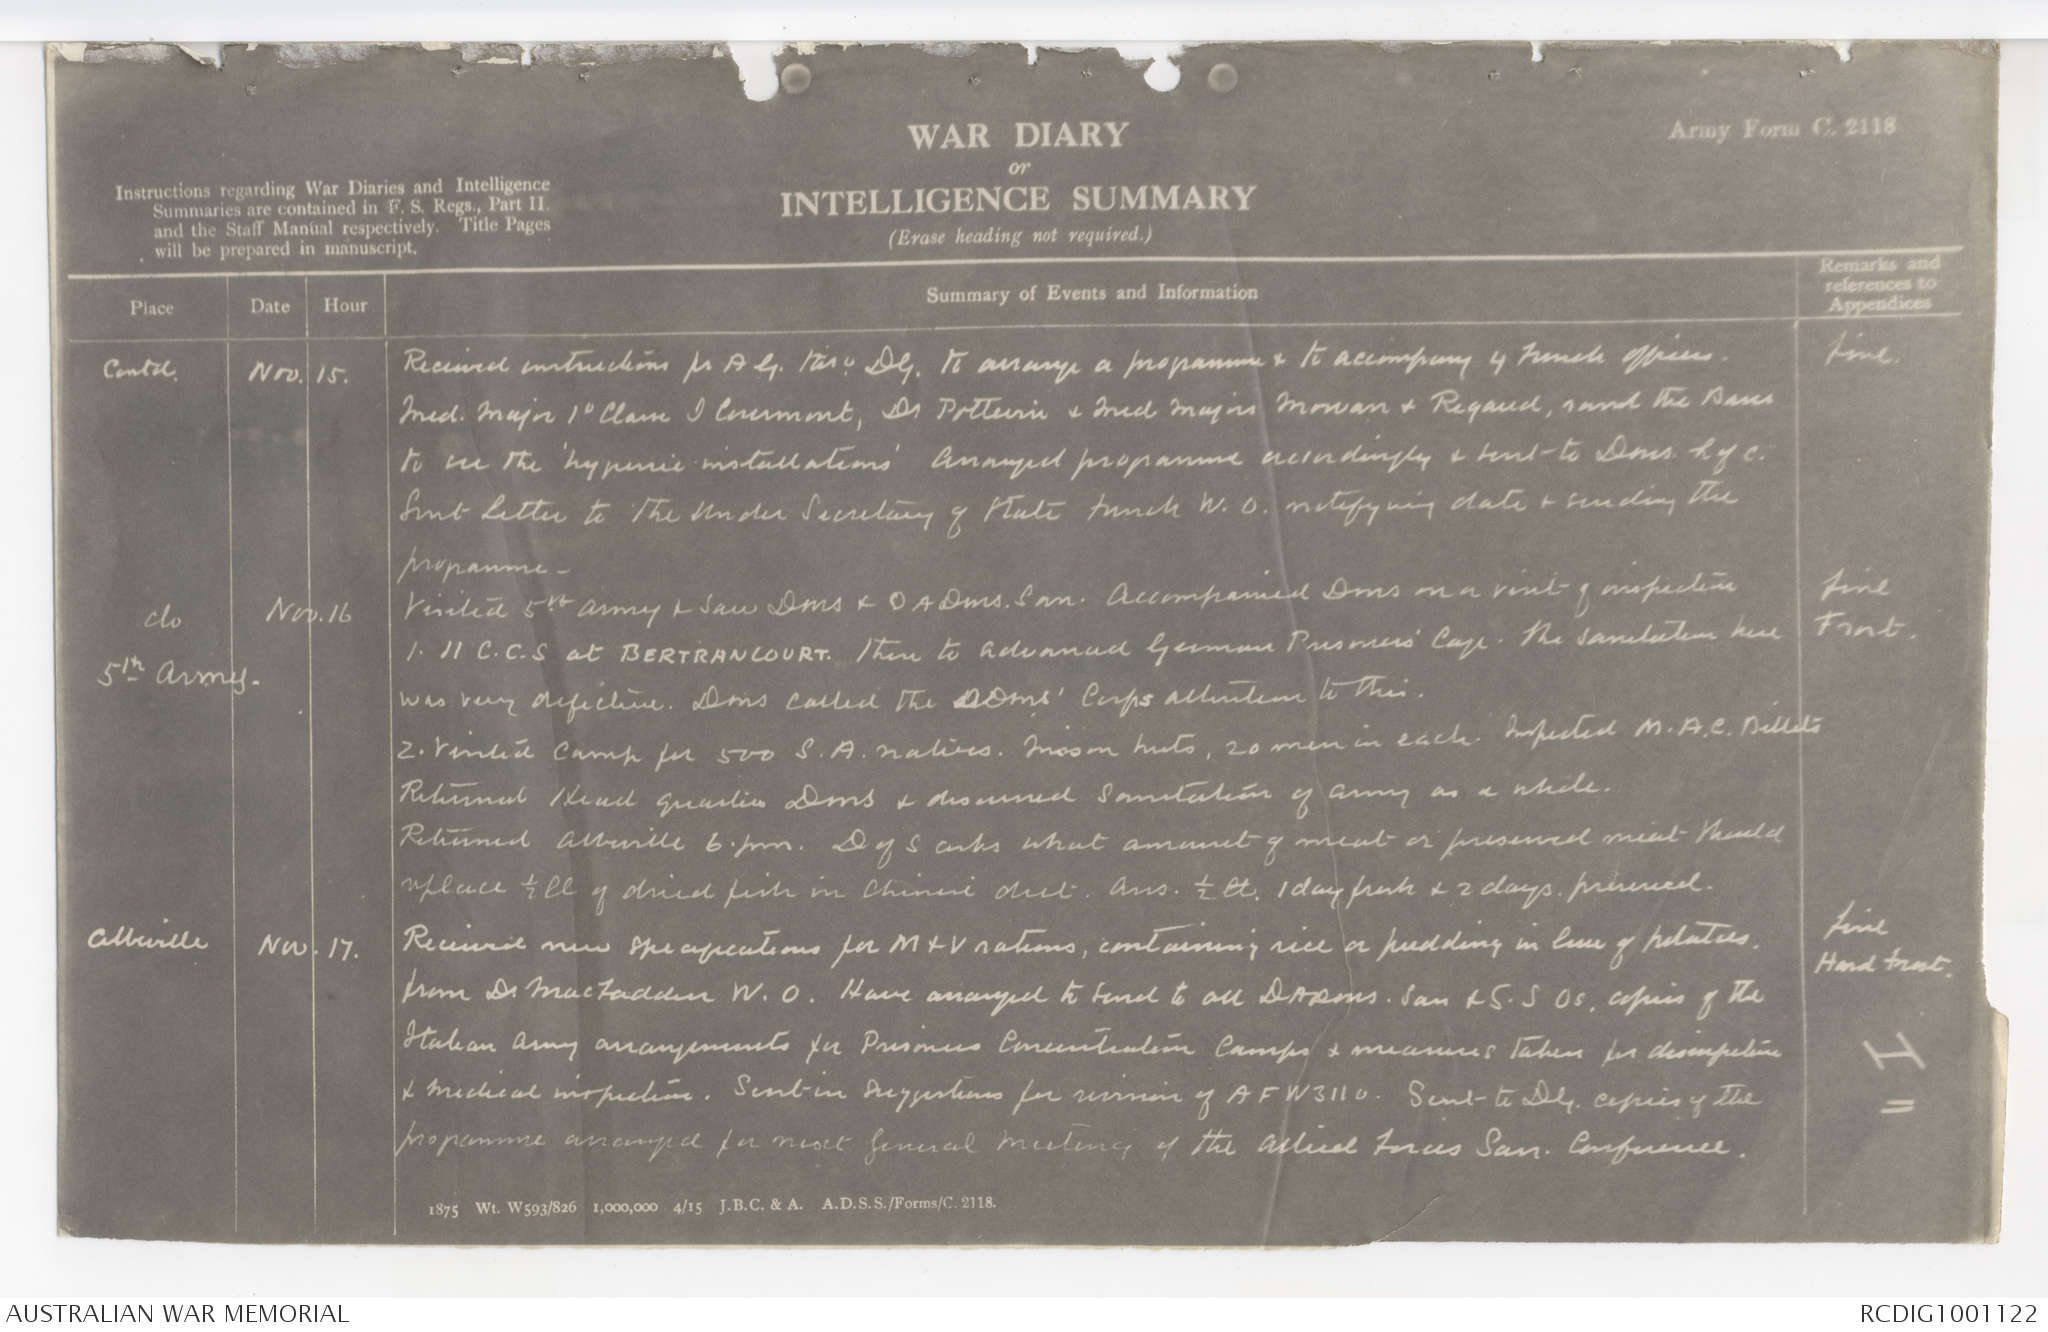 Army Form C. 2118
WAR DIARY
or
INTELLIGENCE SUMMARY
(Erase heading not required.)
Instructions regarding War Diaries and Intelligence
Summaries are contained in F. S. Regs., Part II.
and the Staff Manual respectively. Title Pages
will be prepared in manuscript.
Place
Date
Hour
Summary of Events and Information
Remarks and
references to
Appendices
Contd. Nov. 15. Received instructions fr A.G. DG. to arrange a programme & to accompany 4 French officers. Fine.
Med. Major 1° Classe J Courmont, Dr Pottevin & Med Majors & Regaud, round the Bases
to see the 'hygienic installations' Arranged programme accordingly & sent to Dms. L of C.
Sent Letter to The Under Secretary of State French W. O. notifying date & sending the
programme -
do Nov. 16 Visited 5th Army & saw Dms & DADms. San. Accompanied Dms on a visit of inspection Fine
1. 11 C.C.S at BERTRANCOURT. Then to Advanced German Prisoners' Cage. The sanitation here Frost.
5th Army. was very defective. Dms called the DDms' Corps attention to this.
2. Visited Camp for 500 S. A. natives. Nisson huts, 20 men in each. Inspected M.A.C. Billets
Returned Head quarters Dms & discussed Sanitation of Army as a whole.
Returned Abbeville 6.pm. D of S asks what amount of meat or preserved meat should
replace ½ lb of dried fish in Chinese diet. Ans. ½ lb. 1 day fresh & 2 days. preserved.
Abbeville Nov. 17. Received new specifications for M & V rations, containing rice or pudding in lieu of potatoes. Fine
from Dr MacFadden W. O. Have arranged to send to all DADms. San & S. S Os, copies of the Hard frost.
Italian Army arrangements for Prisoners Concentration Camps & measures taken for disinfection
& medical inspection. Sent in suggestions for revision of A F W3110. Sent to DG. copies of the
programme arranged for next General Meeting of the Allied Forces San. Conference.
1875 Wt. W593/826 1,000,000 4/15 J.B.C. & A. A.D.S.S./Forms/C. 2118.
AUSTRALIAN WAR MEMORIAL
RCDIG1001122